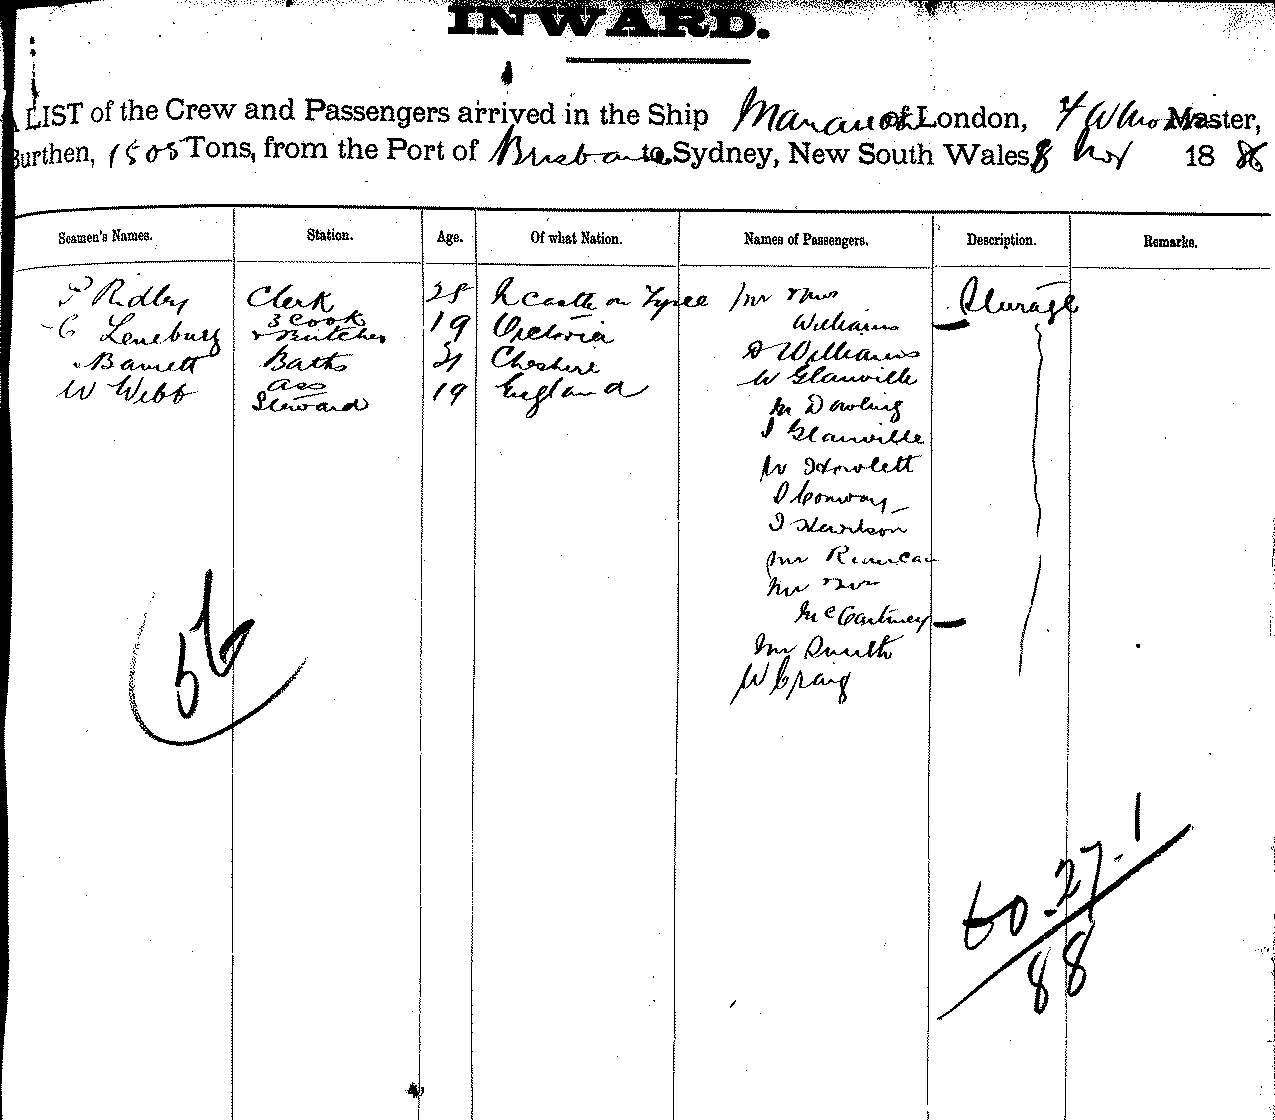 INWARD.
A LIST of the Crew and Passengers arrived in the Ship of London, Master,
Burthen, 1505 Tons, from the Port of Brisbane to Sydney, New South Wales, 8 Nov 1886
Seamen's Names. Station. Age. Of what Nation. Names of Passengers. Description. Remarks.
Ridley Clerk 28 Ncastle on Tyne Mr & Mrs Sturage
C 3 Cook 19 Victoria Williams
& Butcher
Barrett Baths Cheshire D Williams
W Webb Ass 19 England W Glanville
Steward M Dowling
J Glanville
W Howlett
J Conway
J Hewitson
Mr
Mr & Mrs
McCartney
Mr Smith
W Craig
56
60.27.1
88